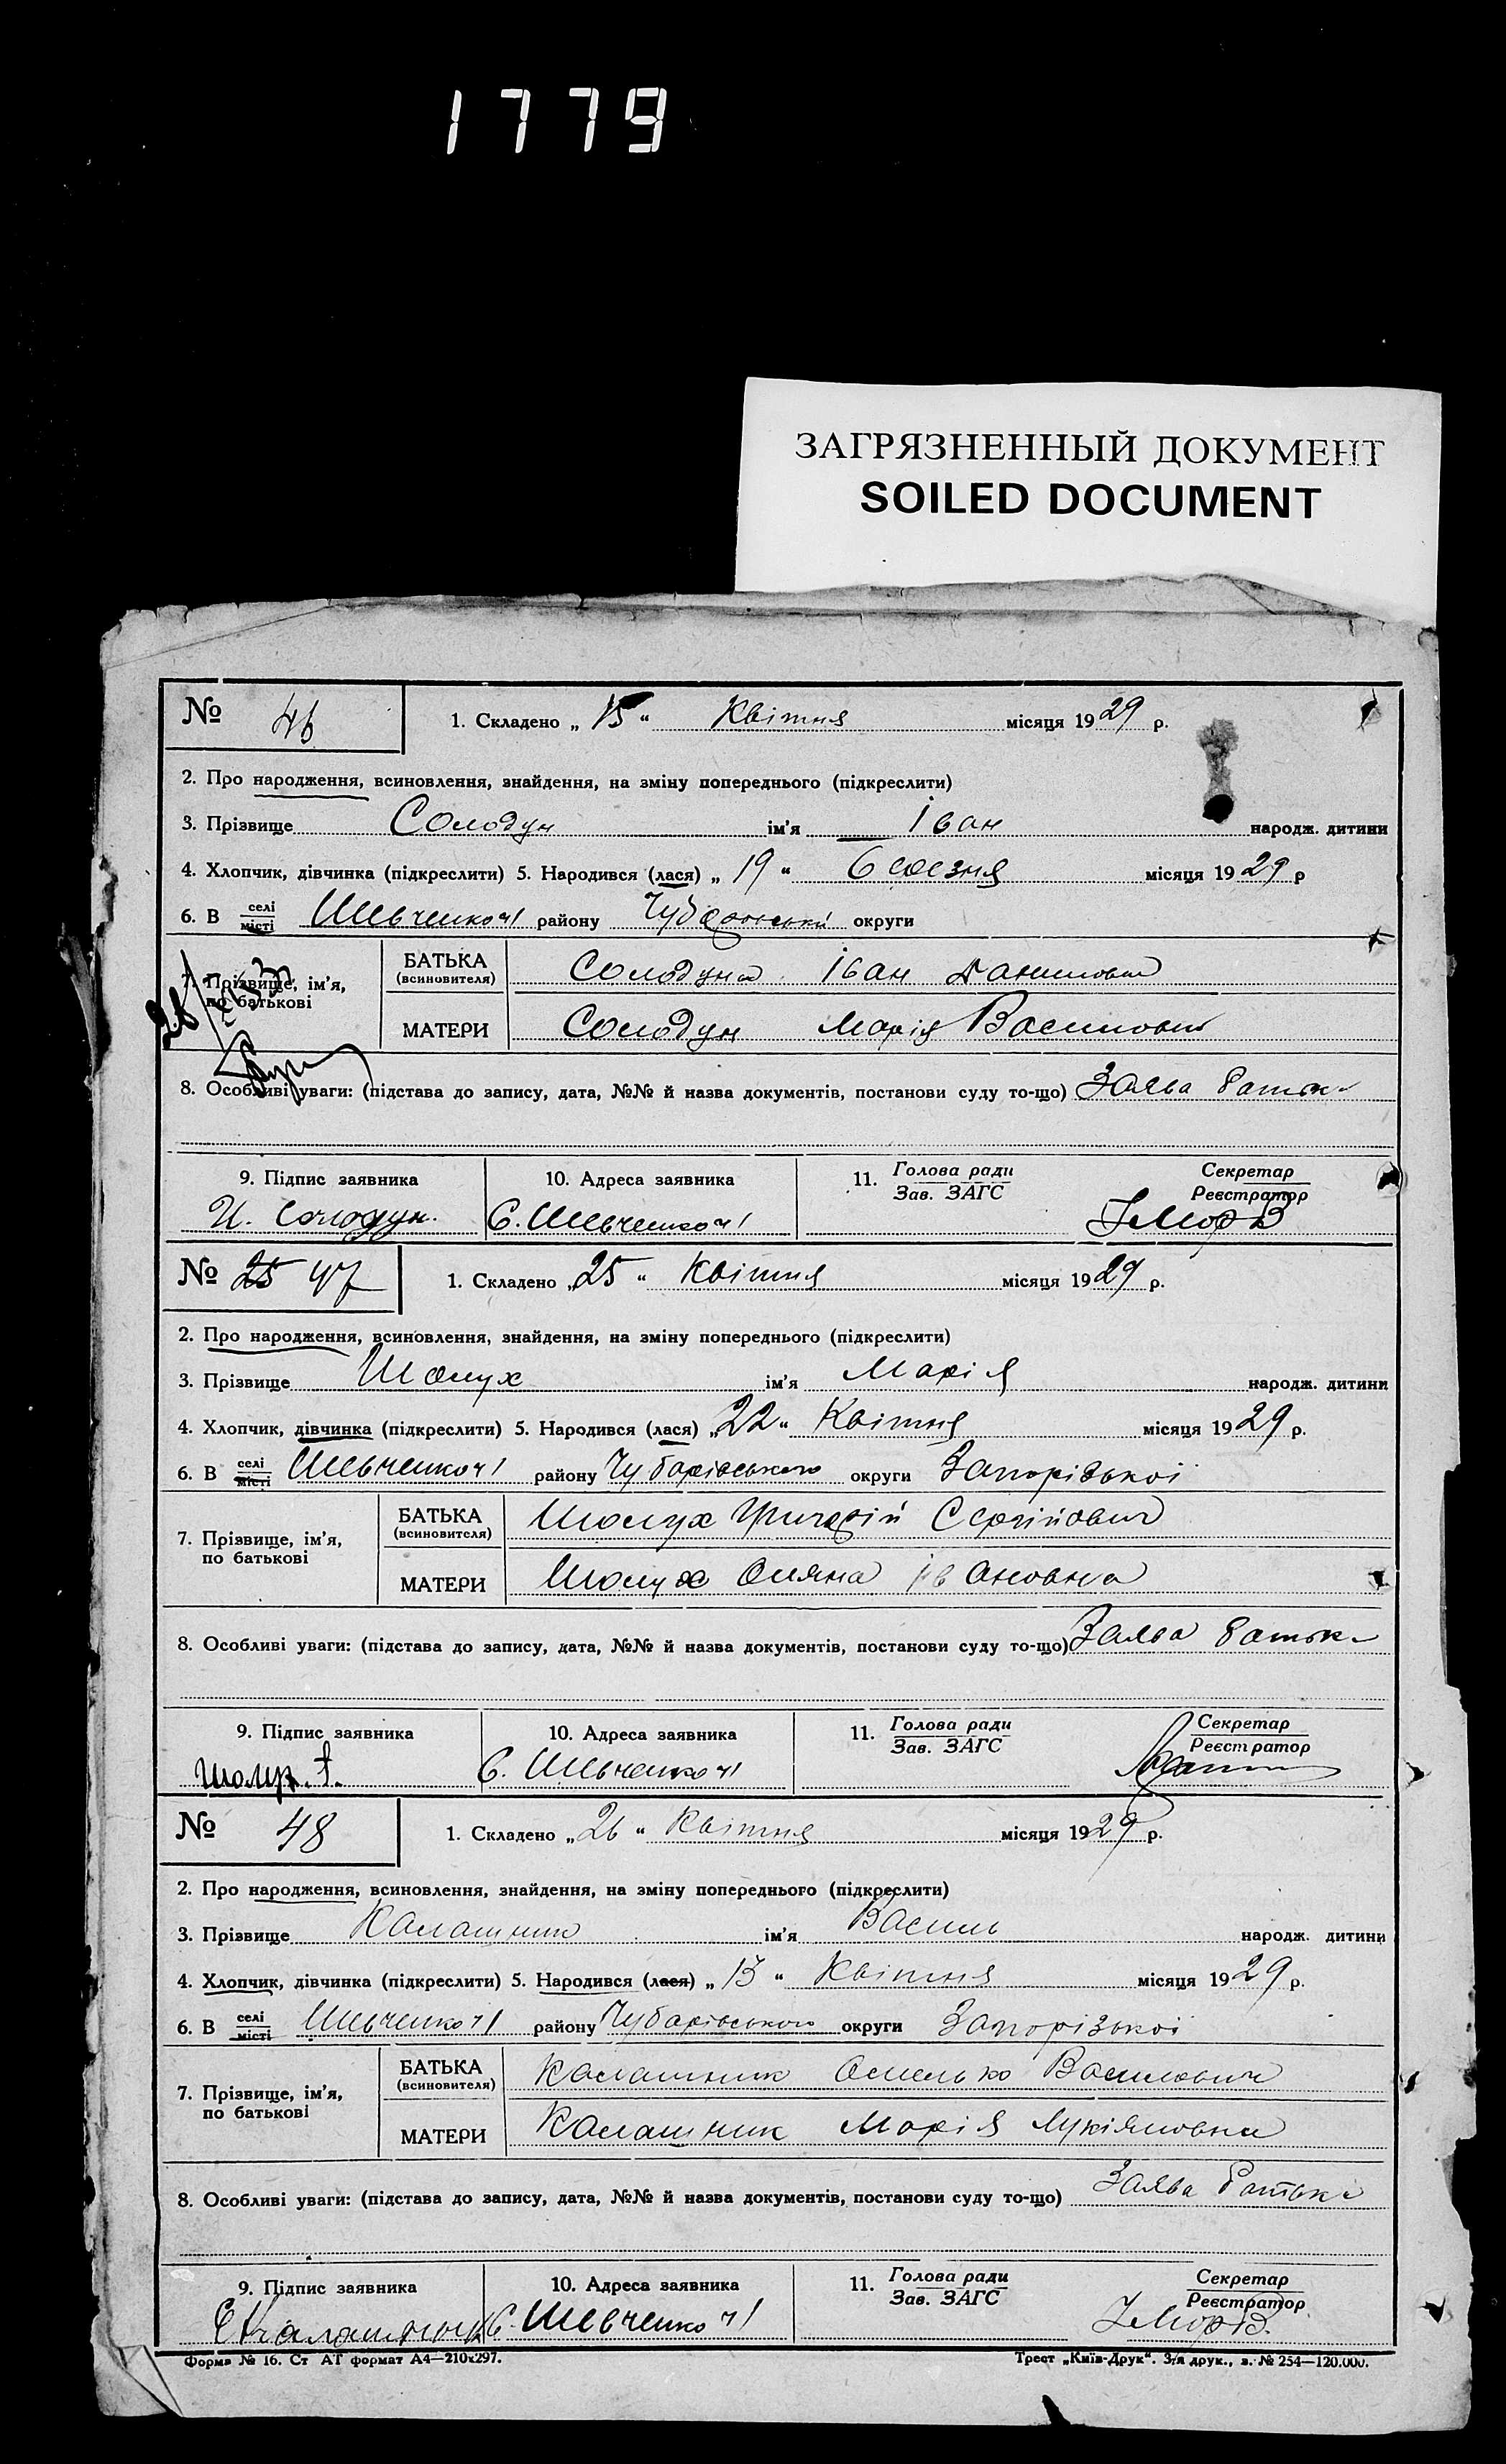 1779
ЗАГРЯЗНЕННЫЙ ДОКУМЕНТ
SOILED DOCUMENT
№ 46 1. Складено „ 15 “ Квітня місяця 1929 р.
2. Про народження, всиновлення, знайдення, на зміну попереднього (підкреслити)
3. Прізвище Солодун ім'я Іван народж. дитини
4. Хлопчик, дівчинка (підкреслити) 5. Народився (лася) „ 19 “ березня місяця 1929 р
6. В селі місті Шевченко №1 району округи
7. Прізвище, ім'я, по батькові
БАТЬКА (всиновителя) Солодун Іван Данилович
МАТЕРИ Солодун Марія
8. Особливі уваги: (підстава до запису, дата, №№ й назва документів, постанови суду то-що) Заява батька
9. Підпис заявника 10. Адреса заявника 11. Голова ради Зав. ЗАГС Секретар Реєстратор
И. Солодун. С. Шевченко №1
№ 25 47 1. Складено „ 25 “ Квітня місяця 1929 р.
2. Про народження, всиновлення, знайдення, на зміну попереднього (підкреслити)
3. Прізвище Шолух ім'я Марія народж. дитини
4. Хлопчик, дівчинка (підкреслити) 5. Народився (лася) „ 22 “ Квітня місяця 1929 р.
6. В селі місті Шевченко №1 району Чубарівського округи Запорізької
7. Прізвище, ім'я, по батькові
БАТЬКА (всиновителя) Шолух Григорій Сергійович
МАТЕРИ Шолух Оляна Івановна
8. Особливі уваги: (підстава до запису, дата, №№ й назва документів, постанови суду то-що) Заява батька
9. Підпис заявника 10. Адреса заявника 11. Голова ради Зав. ЗАГС Секретар Реєстратор
С. Шевченко №1
№ 48 1. Складено „ 26 “ Квітня місяця 1929 р.
2. Про народження, всиновлення, знайдення, на зміну попереднього (підкреслити)
3. Прізвище Калашник ім'я Василь народж. дитини
4. Хлопчик, дівчинка (підкреслити) 5. Народився (лася) „ 13 “ Квітня місяця 1929 р.
6. В селі місті Шевченко №1 району Чубарівського округи Запорізької
7. Прізвище, ім'я, по батькові
БАТЬКА (всиновителя) Калашник Омелько Василович
МАТЕРИ Калашник Марія Лукіяновна
8. Особливі уваги: (підстава до запису, дата, №№ й назва документів, постанови суду то-що) Заява батька
9. Підпис заявника 10. Адреса заявника 11. Голова ради Зав. ЗАГС Секретар Реєстратор
Є Калашник С. Шевченко №1
Форма № 16. Ст АТ формат А4—210х297. Трест „Київ-Друк“. 3/я друк., з. № 254—120.000.